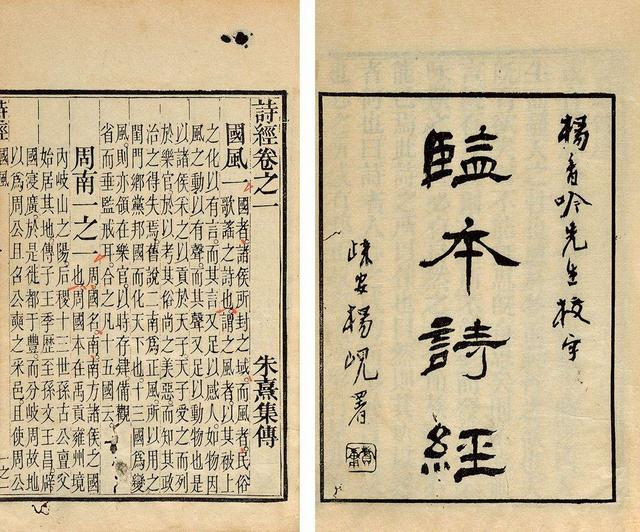 楊香吟先生校字
監本詩經
楊峴署
詩經卷之一 朱熹集傳
國風一 國者諸侯所封之域而風者民俗
歌謠之詩也謂之風者以其被上
之化以有言而其言又足以感人如物因
風之動以有聲而其聲又足以動物也是
以諸侯采之以貢於天子天子受之而列
於樂官於以考其俗尚之美惡而知其政
治之得失焉舊說二南為正風所以用之
閨門鄉黨邦國而化天下也十三國為變
風則亦領在樂官以時存肄備觀
省而垂監戒耳合之凡十五國云
周南一之一 周國名南南方諸侯之國
也周國本在禹貢雍州境
內岐山之陽后稷十三世孫古公亶父
始居其地傳子王季歷至孫文王昌辟
國寖廣於是徙都于豐而分岐周故地
以爲周公旦召公奭之采邑且使周公
詩經 國風